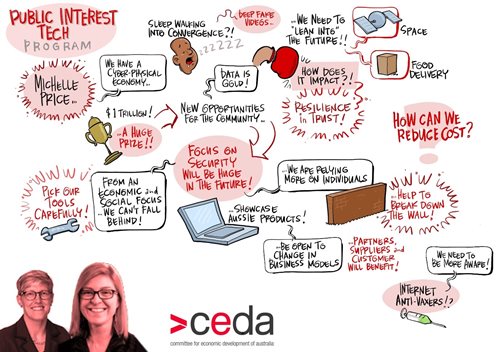 PUBLIC INTEREST
TECH
PROGRAM
SLEEP WALKING
INTO CONVERGENCE?!
ZZZZZZ
DEEP FAKE
VIDEOS...
...WE NEED TO
"LEAN INTO"
THE FUTURE!!
SPACE
FOOD
DELIVERY
MICHELLE
PRICE...
WE HAVE A
CYBER-PHYSICAL
ECONOMY...
DATA IS
GOLD!
HOW DOES
IT IMPACT?!
RESILIENCE
in TRUST!
$1 TRILLION!
...A HUGE
PRIZE!!
NEW OPPORTUNITIES
FOR THE COMMUNITY...
HOW CAN WE
REDUCE COST?
!
FOCUS ON
SECURITY
WILL BE HUGE
IN THE FUTURE!
PICK OUR
TOOLS
CAREFULLY!
FROM AN
ECONOMIC and
SOCIAL FOCUS
...WE CAN'T FALL
BEHIND!
...WE ARE RELYING
MORE ON INDIVIDUALS
...HELP TO
BREAK DOWN
THE WALL!
...SHOWCASE
AUSSIE PRODUCTS!
...BE OPEN TO
CHANGE IN
BUSINESS MODELS
...PARTNERS,
SUPPLIERS and
CUSTOMER
WILL BENEFIT!
WE NEED TO
BE MORE AWARE!
INTERNET
ANTI-VAXERS!?
>ceda
committee for economic development of australia